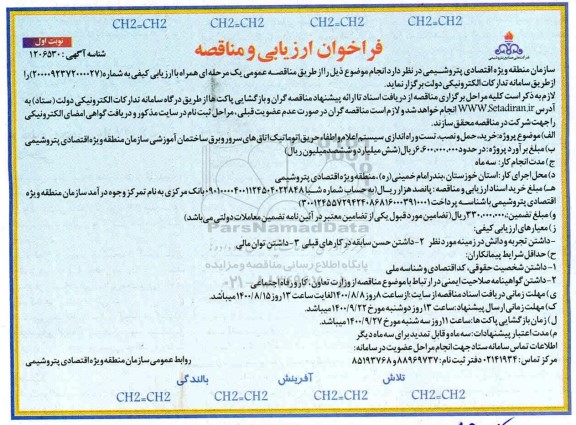 CH2=CH2 CH2=CH2 CH2=CH2 CH2=CH2
نوبت اول
فراخوان ارزیابی و مناقصه
شناسه آگهی: ۱۲۰۶۵۳۰
سازمان منطقه ویژه اقتصادی پتروشیمی در نظر دارد انجام موضوع ذیل را از طریق مناقصه عمومی یک مرحله ای همراه با ارزیابی کیفی به شماره (۲۰۰۰۰۹۲۳۷۲۰۰۰۰۲۷) را
از طریق سامانه تدارکات الکترونیکی دولت برگزار نماید.
لازم به ذکر است کلیه مراحل برگزاری مناقصه از دریافت اسناد تا ارائه پیشنهاد مناقصه گران و بازگشایی پاکت ها از طریق درگاه سامانه تدارکات الکترونیکی دولت (ستاد) به
آدرس WWW.Setadiran.ir انجام خواهد شد و لازم است مناقصه گران در صورت عدم عضویت قبلی، مراحل ثبت نام در سایت مذکور و دریافت گواهی امضای الکترونیکی
را جهت شرکت در مناقصه محقق سازند.
الف) موضوع پروژه: خرید، حمل و نصب، تست و راه اندازی سیستم اعلام و اطفاء حریق اتوماتیک اتاق های سرور و برق ساختمان آموزشی سازمان منطقه ویژه اقتصادی پتروشیمی
ب) مبلغ برآورد پروژه: در حدود ۶.۶۰۰.۰۰۰.۰۰۰ ریال (شش میلیارد و ششصد میلیون ریال)
ج) مدت انجام کار: سه ماه
د) محل اجرای کار: استان خوزستان، بندر امام خمینی (ره)، منطقه ویژه اقتصادی پتروشیمی
هـ) مبلغ خرید اسناد ارزیابی و مناقصه: پانصد هزار ریال (به حساب شماره شبا بانک مرکزی به نام تمرکز وجوه درآمد سازمان منطقه ویژه
اقتصادی پتروشیمی با شناسه پرداخت
و) مبلغ تضمین: ۳۳۰.۰۰۰.۰۰۰ ریال (تضامین مورد قبول یکی از تضامین معتبر در آئین نامه تضمین معاملات دولتی می باشد)
ز) معیارهای ارزیابی کیفی:
-داشتن تجربه و دانش در زمینه مورد نظر ۲-داشتن حسن سابقه در کارهای قبلی ۳-داشتن توان مالی
ح) حداقل شرایط پیمانکاران:
۱-داشتن شخصیت حقوقی، کد اقتصادی و شناسه ملی
۲-داشتن گواهینامه صلاحیت ایمنی در ارتباط با موضوع مناقصه از وزارت تعاون، کار و رفاه اجتماعی
ی) مهلت زمانی دریافت اسناد مناقصه از سایت: از ساعت ۸ روز ۱۴۰۰/۸/۸ لغایت ساعت ۱۳ روز ۱۴۰۰/۸/۱۵ میباشد.
ک) مهلت زمانی ارسال پیشنهاد: ساعت ۱۳ روز دوشنبه مورخ ۱۴۰۰/۹/۲۲ میباشد.
ل) زمان بازگشایی پاکت ها: ساعت ۱۱ روز سه شنبه مورخ ۱۴۰۰/۹/۲۷ میباشد.
م) مدت اعتبار پیشنهادات: سه ماه و قابل تمدید برای سه ماه دیگر
اطلاعات تماس سامانه ستاد جهت انجام مراحل عضویت در سامانه:
مرکز تماس: ۰۲۱۴۱۹۳۴ دفتر ثبت نام: ۸۸۹۶۹۷۳۷ و ۸۵۱۹۳۷۶۸
روابط عمومی سازمان منطقه ویژه اقتصادی پتروشیمی
تلاش آفرینش بالندگی
CH2=CH2 CH2=CH2 CH2=CH2 CH2=CH2
ParsNamadData
پایگاه اطلاع رسانی مناقصه و مزایده